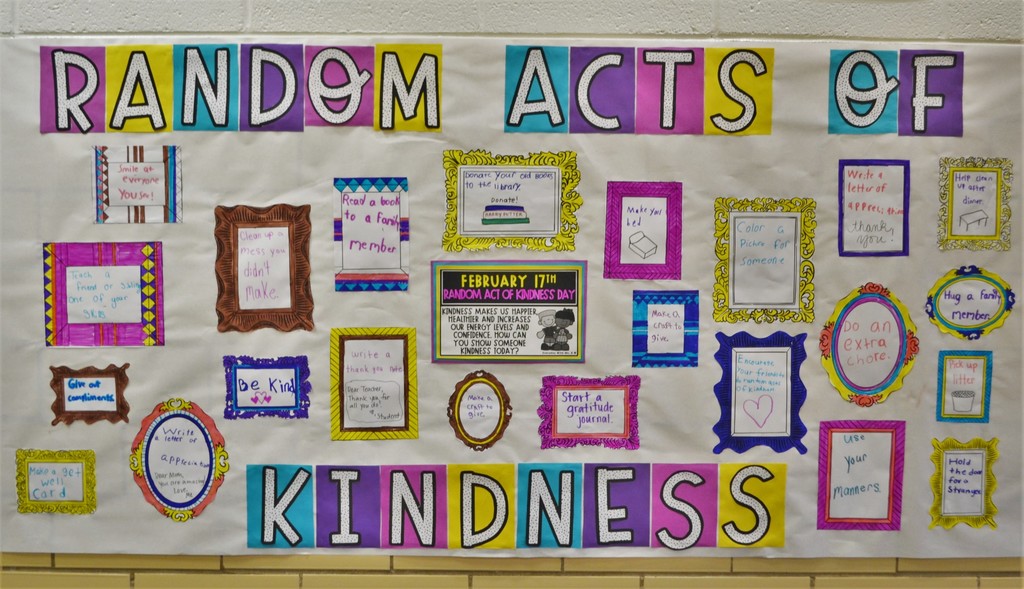 RANDOM ACTS OF
Smile at
everyone
you see!
Teach a
friend or sibling
one of your
Give out
compliments.
Make a get
well
Card
Write
a letter of
appreciation
Dear Mom,
You are amazing
Love, Me
Clean up a
mess you
didn't
make.
Be Kind
Read a book
to a family
member
Write a
thank you note
Dear Teacher,
Thank you for
all you do!
Student
Donate your old books
to the library.
Donate!
HARRY POTTER
FEBRUARY 17TH
RANDOM ACT OF KINDNESS DAY
KINDNESS MAKES US HAPPIER,
HEALTHIER AND INCREASES
OUR ENERGY LEVELS AND
CONFIDENCE. HOW CAN
YOU SHOW SOMEONE
KINDNESS TODAY?
Make a
craft to
give.
Start a
gratitude
journal.
Make your
bed
Make a
craft to
give.
Color a
Picture for
someone
Encourage
your friends to
do random acts
of kindness
Write a
letter of
appreciation
thank
you!
Do an
extra
chore.
Use
your
manners
Help clean
up after
dinner.
Hug a family
member.
Pick up
litter
Hold
the door
for a
stranger
KINDNESS